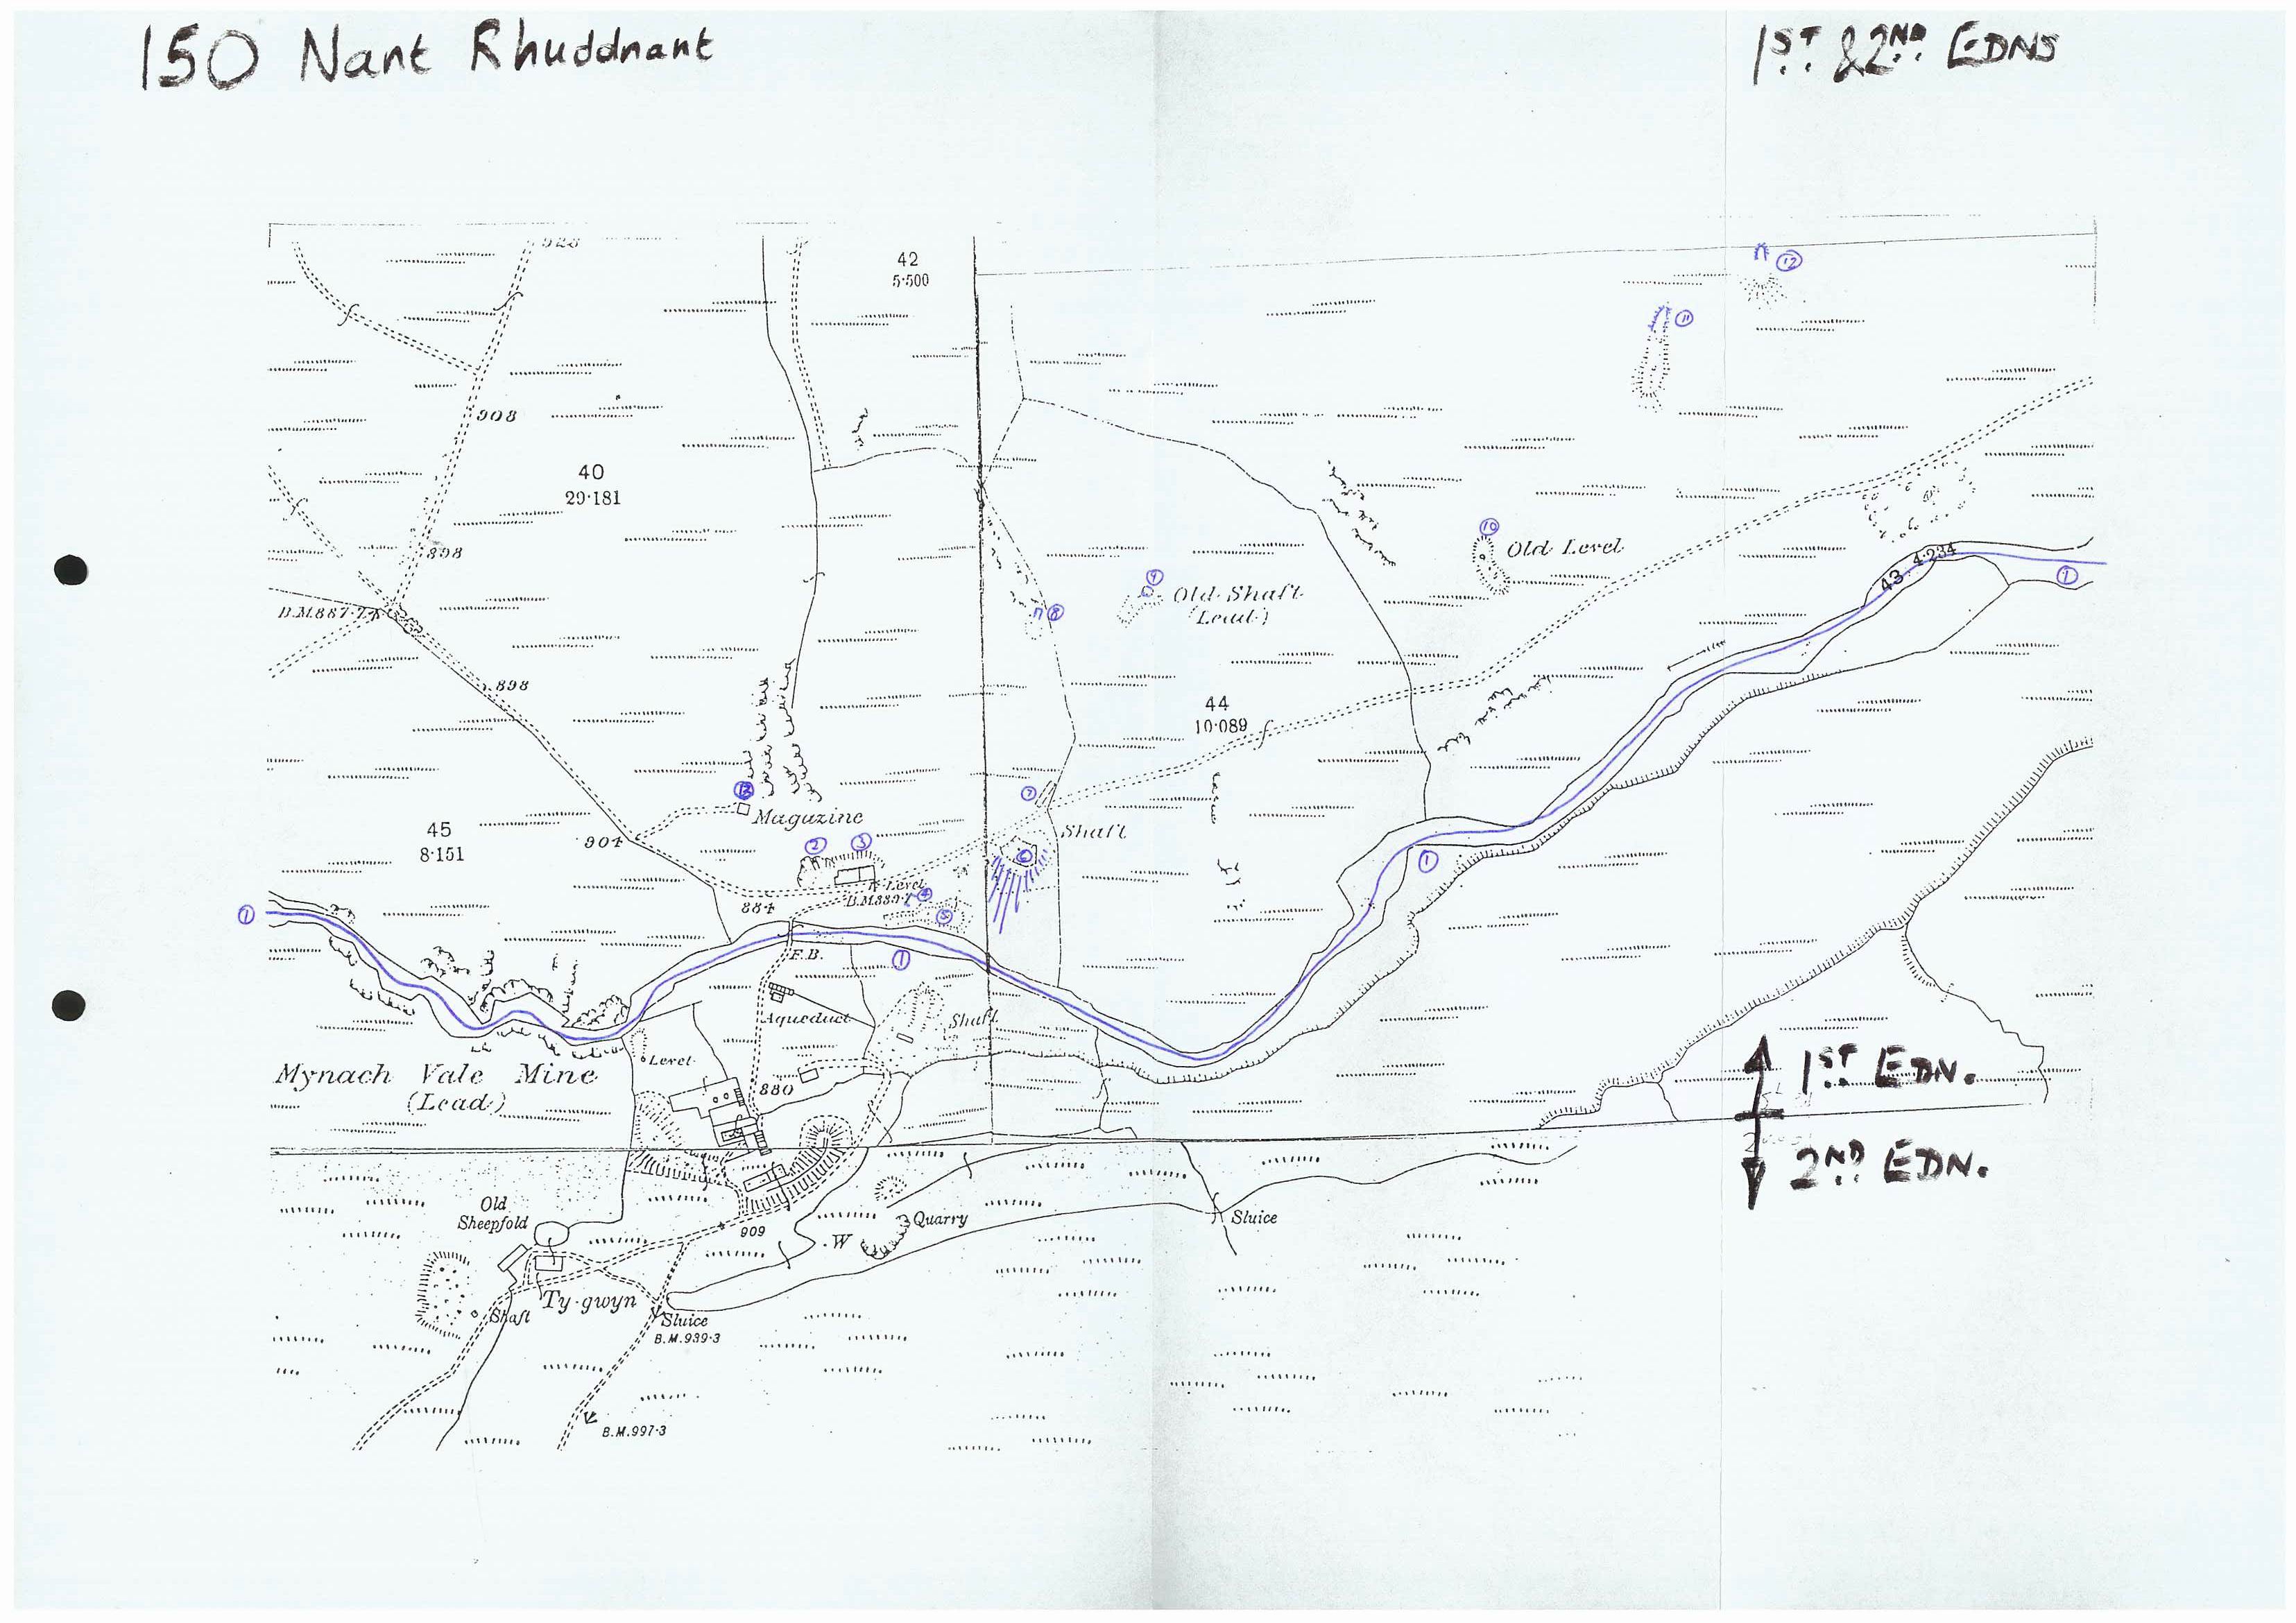 150 Nant Rhuddnant
1ST & 2ND EDNS
928
42
5·500
12
11
908
40
29·181
898
10
Old Level
43 4·234
1
9
Old Shaft
(Lead)
8
B.M.887·7
898
44
10·089
7
Magazine
Shaft
45
8·151
904
2
3
6
Level
4
B.M.889·7
884
5
1
1
F.B.
1
Aqueduct
Shaft
Level
Mynach Vale Mine
(Lead)
880
1ST EDN.
2ND EDN.
Old
Sheepfold
909
W
Quarry
Sluice
Ty-gwyn
Shaft
Sluice
B.M.939·3
B.M.997·3